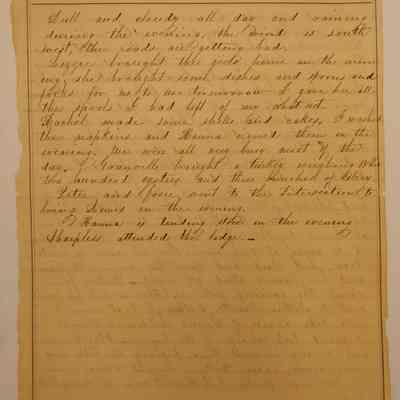 Dull and cloudy all day and raining
during the evening, the wind is south
west, the roads are getting bad.
Lizzie brought the girls home in the morn
ing, she brought some dishes and spoons and
forks for us to use tomorrow. I gave her all
the spools I had left of my
Rachel made some shells and cakes, I washed
the napkins and Hanna ironed them in the
evening. We were all very busy most of the
day. J Granville brought a turkey weighing
two hundred oysters and three bunches of celery
Peter and Josie went to the Intersection to
bring Lewis in the evening.
J Hanna is tending store in the evening
Sharpless attended the lodge.—